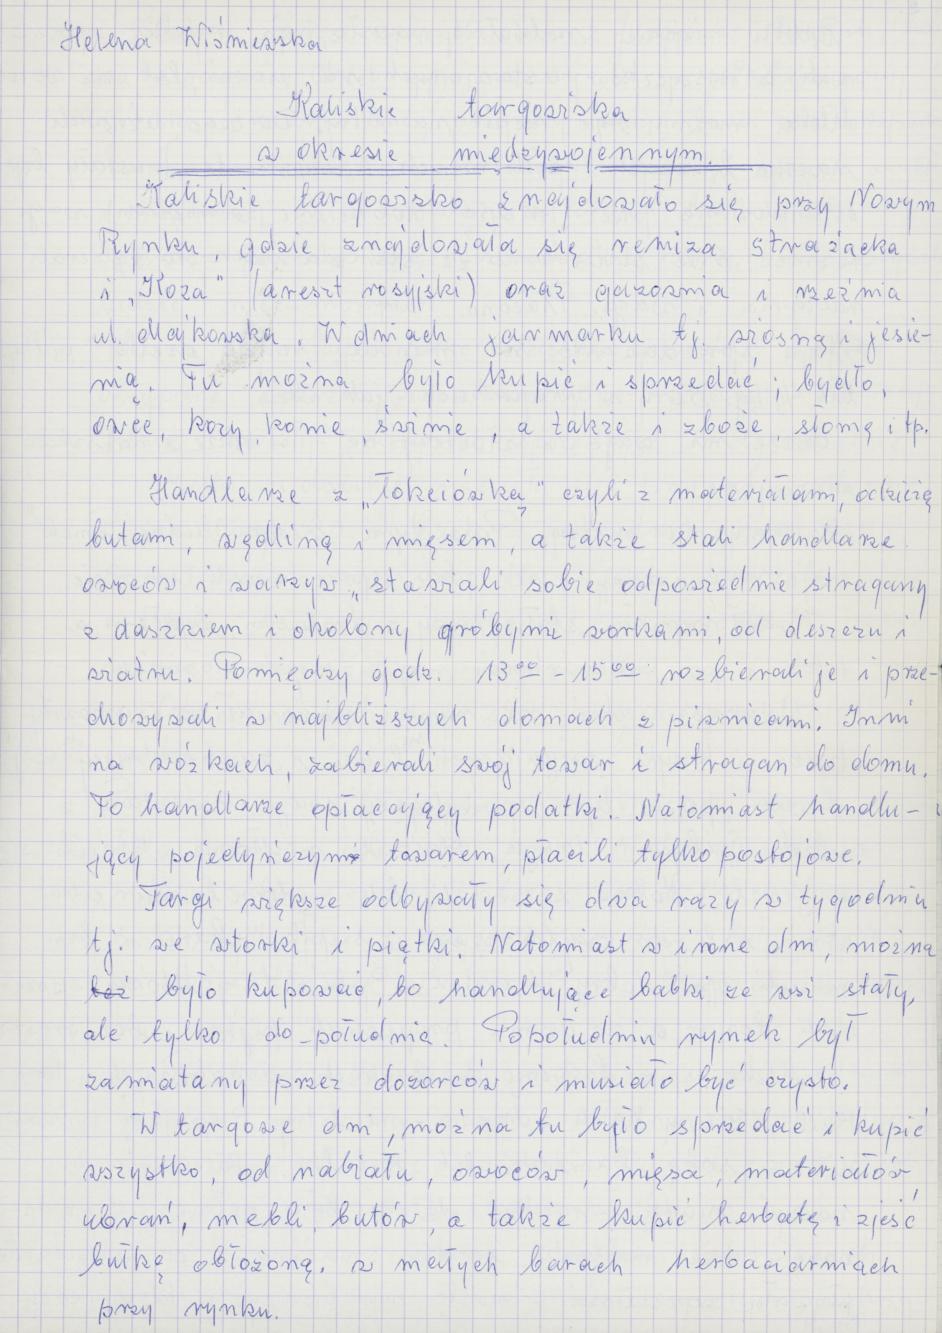 Helena Wiśniewska
Kaliskie targowiska
w okresie międzywojennym.
Kaliskie targowisko znajdowało się przy Nowym
Rynku, gdzie znajdowała się remiza strażacka
i „Koza" (areszt rosyjski) oraz gazownia i rzeźnia
ul. Majkowska. W dniach jarmarku tj. wiosną i jesie-
nią. Tu można było kupić i sprzedać; bydło,
owce, kozy, konie, świnie, a także i zboże, słomę i tp.
Handlarze z „łokciówką" czyli z materiałami, odzieżą
butami, wędliną i mięsem, a także stali handlarze
owoców i warzyw „ stawiali sobie odpowiednie stragany
z daszkiem i okolony gróbymi workami, od deszczu i
wiatru. Pomiędzy godz. 13⁰⁰ - 15⁰⁰ rozbierali je i prze-
chowywali w najbliższych domach z piwnicami. Inni
na wózkach, zabierali swój towar i stragan do domu.
To handlarze opłacający podatki. Natomiast handlu-
jący pojedyńczym towarem, płacili tylko postojowe.
Targi większe odbywały się dwa razy w tygodniu
tj. we wtorki i piątki. Natomiast w inne dni, można
było kupować, bo handlujące babki ze wsi stały,
ale tylko do-południa. Popołudniu rynek był
zamiatany przez dozorców i musiało być czysto.
W targowe dni, można tu było sprzedać i kupić
wszystko, od nabiału, owoców, mięsa, materiałów
ubrań, mebli, butów, a także kupić herbatę i zjeść
bułkę obłożoną. w małych barach herbaciarniach
przy rynku.